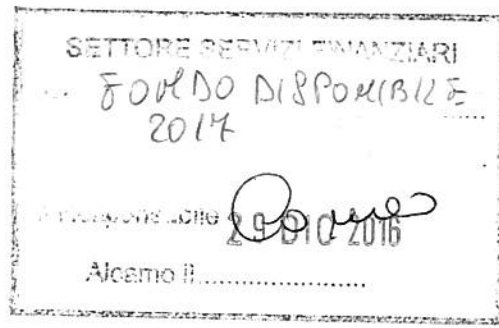 SETTORE SERVIZI FINANZIARI
FONDO DISPONIBILE
2017
Il Responsabile
29 DIC 2016
Alcamo lì